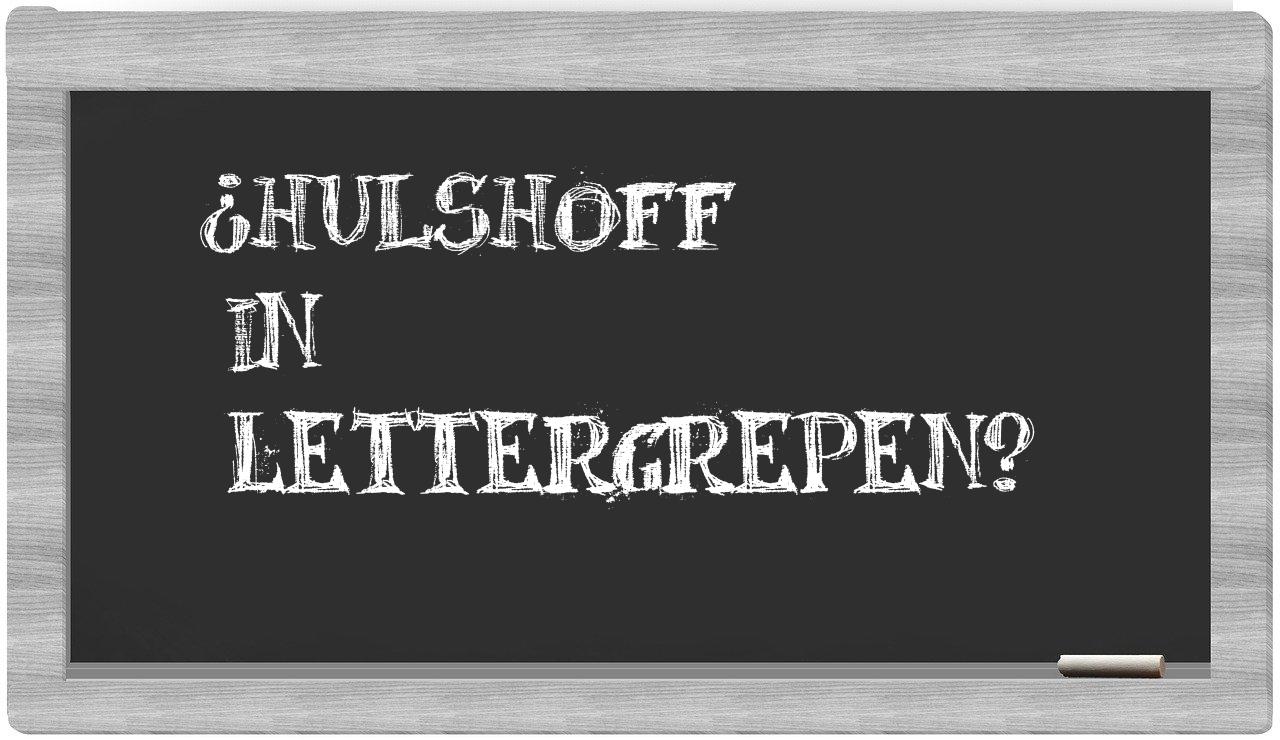 ¿HULSHOFF
IN
LETTERGREPEN?